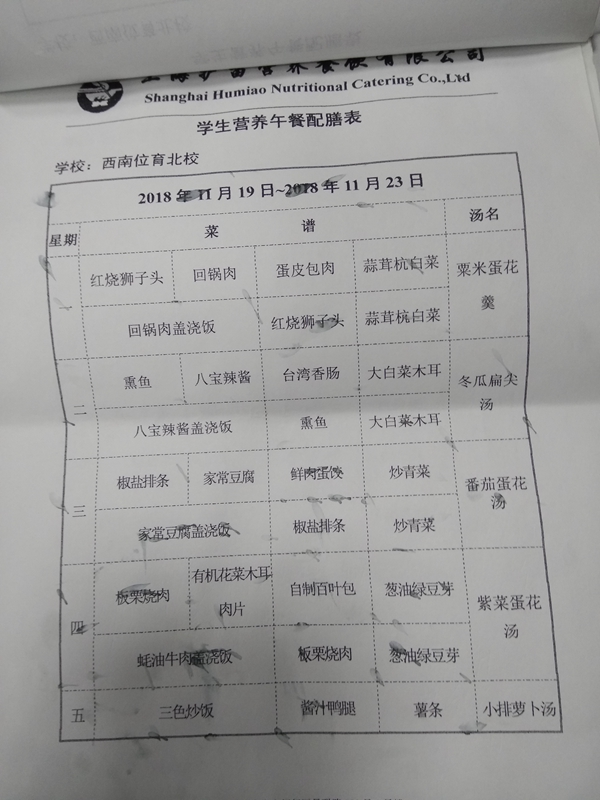 营养餐饮有限公司
Shanghai Humiao Nutritional Catering Co.,Ltd
学生营养午餐配膳表
学校：西南位育北校
2018 年 11 月 19 日~2018 年 11 月 23 日
星期 菜 谱 汤名
一 红烧狮子头 回锅肉 蛋皮包肉 蒜茸杭白菜 粟米蛋花
羹
回锅肉盖浇饭 红烧狮子头 蒜茸杭白菜
二 熏鱼 八宝辣酱 台湾香肠 大白菜木耳 冬瓜扁尖
汤
八宝辣酱盖浇饭 熏鱼 大白菜木耳
三 椒盐排条 家常豆腐 鲜肉蛋饺 炒青菜 番茄蛋花
汤
家常豆腐盖浇饭 椒盐排条 炒青菜
四 板栗烧肉 有机花菜木耳
肉片 自制百叶包 葱油绿豆芽 紫菜蛋花
汤
蚝油牛肉盖浇饭 板栗烧肉 葱油绿豆芽
五 三色炒饭 酱汁鸭腿 薯条 小排萝卜汤